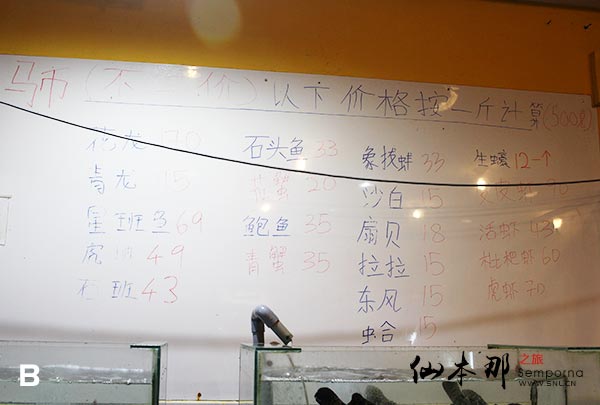 马币(不二价)以下价格按一斤计算(500g)
花龙 70
青龙 15
星班鱼 69
虎 49
班 43
石头鱼 33
蟹 20
鲍鱼 35
青蟹 35
象拔蚌 33
沙白 15
扇贝 18
拉拉 15
东风 15
虫合 15
生蠔 12一个
皮虾
活虾 43
枇杷虾 60
虎虾 70
B
仙本那之旅
Semporna
WWW.SNL.CN